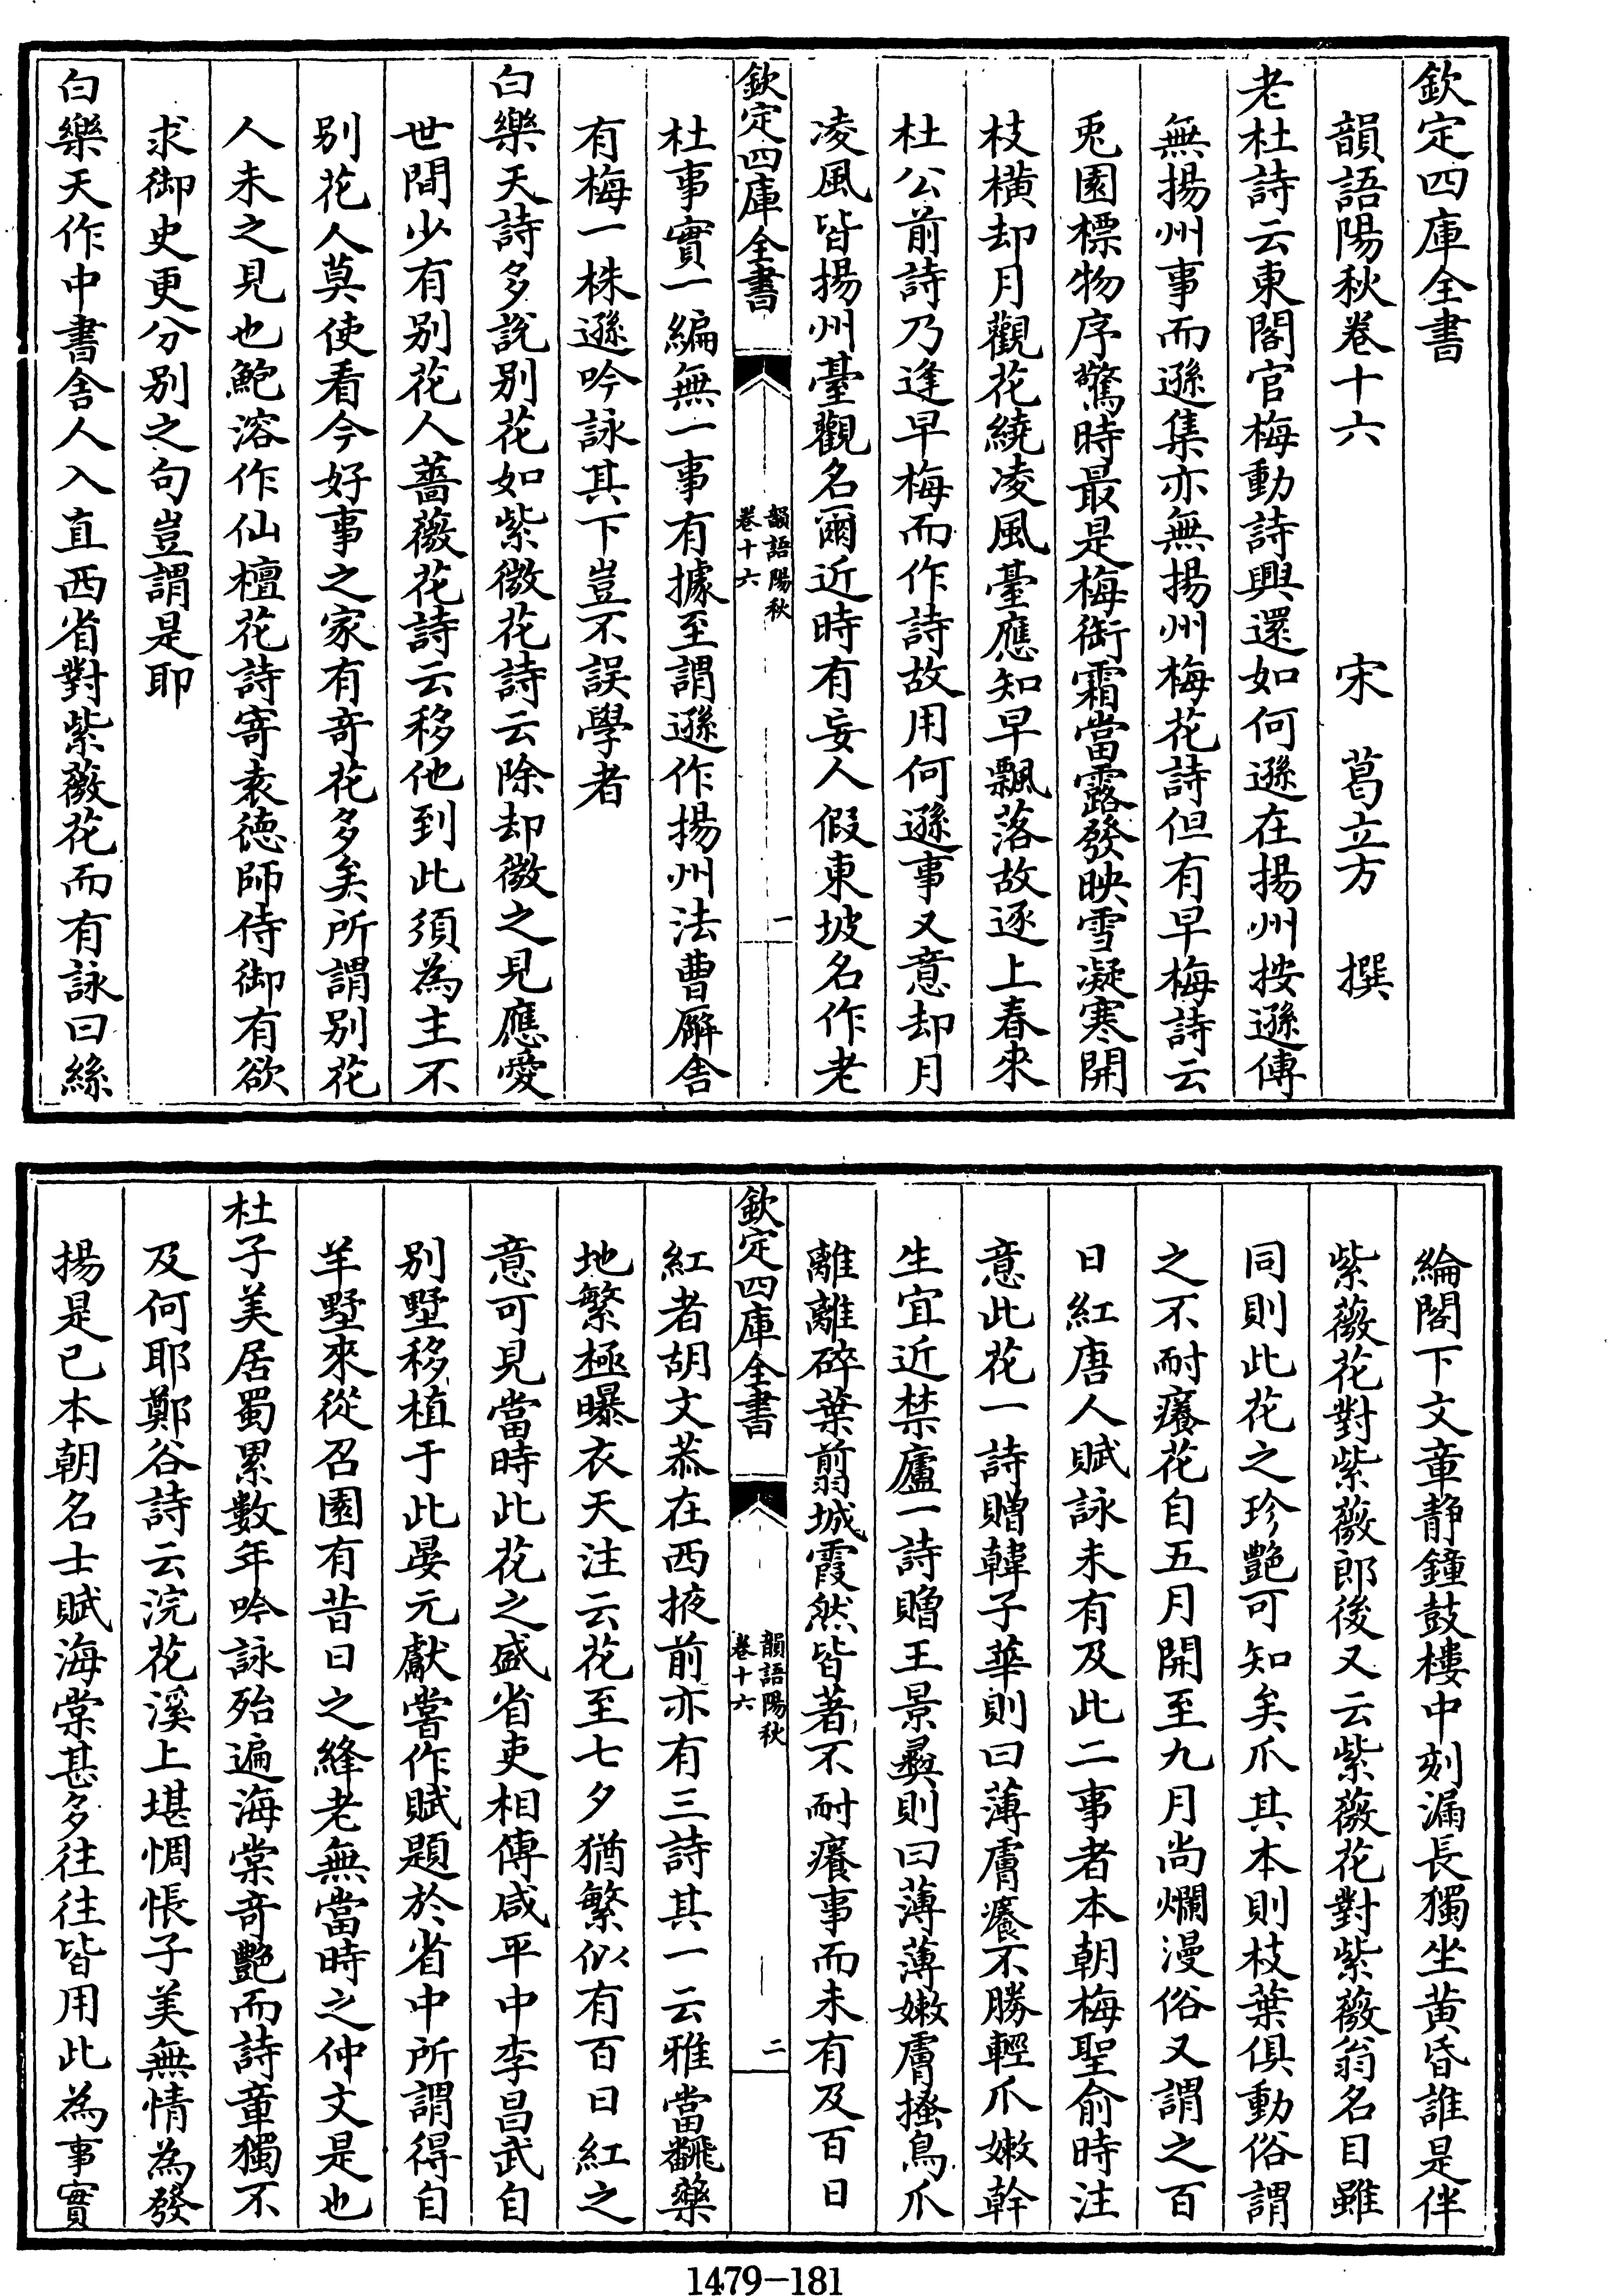 欽定四庫全書
韻語陽秋卷十六
宋 葛立方 撰
老杜詩云東閣官梅動詩興還如何遜在揚州按遜傳
無揚州事而遜集亦無揚州梅花詩但有早梅詩云
兎園標物序驚時最是梅銜霜當露發映雪凝寒開
枝橫却月觀花繞凌風臺應知早飄落故逐上春來
杜公前詩乃逢早梅而作詩故用何遜事又意却月
凌風皆揚州臺觀名爾近時有妄人假東坡名作老
欽定四庫全書
韻語陽秋
卷十六
一
杜事實一編無一事有據至謂遜作揚州法曹廨舍
有梅一株遜吟詠其下豈不誤學者
白樂天詩多說别花如紫微花詩云除却微之見應愛
世間少有别花人薔薇花詩云移他到此須為主不
别花人莫使看今好事之家有竒花多矣所謂别花
人未之見也鮑溶作仙檀花詩寄袁德師侍御有欲
求御史更分别之句豈謂是耶
白樂天作中書舍人入直西省對紫薇花而有詠曰絲
綸閣下文章静鐘鼓樓中刻漏長獨坐黄昏誰是伴
紫薇花對紫薇郎後又云紫薇花對紫薇翁名目雖
同則此花之珍艶可知矣爪其本則枝葉俱動俗謂
之不耐癢花自五月開至九月尚爛漫俗又謂之百
日紅唐人賦詠未有及此二事者本朝梅聖俞時注
意此花一詩贈韓子華則曰薄膚癢不勝輕爪嫩幹
生宜近禁廬一詩贈王景彞則曰薄薄嫩膚搔鳥爪
離離碎葉翦城霞然皆著不耐癢事而未有及百日
欽定四庫全書
韻語陽秋
卷十六
二
紅者胡文恭在西掖前亦有三詩其一云雅當飜藥
地繁極曝衣天注云花至七夕猶繁似有百日紅之
意可見當時此花之盛省吏相傳咸平中李昌武自
别墅移植于此晏元獻嘗作賦題於省中所謂得自
羊墅來從召園有昔日之絳老無當時之仲文是也
杜子美居蜀累數年吟詠殆遍海棠竒艶而詩章獨不
及何耶鄭谷詩云浣花溪上堪惆悵子美無情為發
揚是已本朝名士賦海棠甚多往往皆用此為事實
1479-181